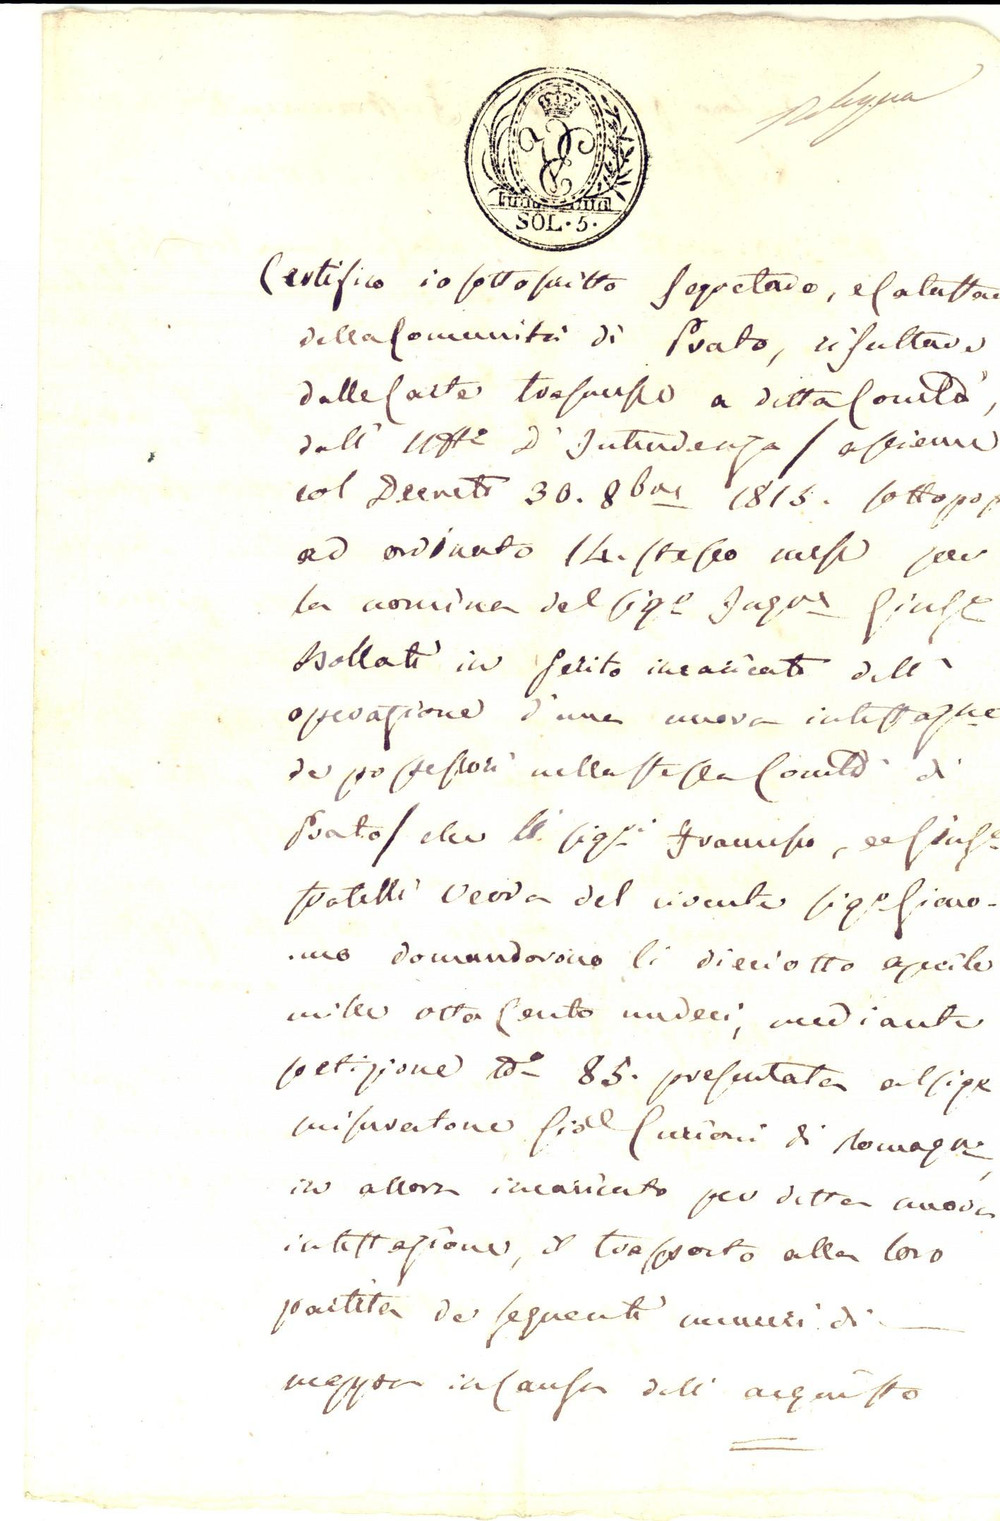 SOL. 5.
Certifico io sottoscritto Segretaro, e Catastraro
della Comunità di Prato, risultare
dalle Carte trasmesse a ditta Com.tà,
dall' Uff.o d'Intendenza / assieme
col Decreto 30. 8bre 1815.
ad ordinato 14. stesso mese per
la nomina del sig.r Ingre Gius.e
Bollati in perito incaricato dell'
operazione d'una nuova intestaz.ne
de possessori nella stessa Com.tà di
Prato / che li sig.ri Francesco, e Gius.e
fratelli del vivente sig.r Giero-
-mo domandorono li dieciotto aprile
mille otto Cento undeci, mediante
petizione N.o 85. presentata al sig.r
misuratore Curioni di Romag.no,
in allora incaricato per detta nuova
intestazione, il trasporto alla loro
partita de seguenti numeri di
mappa in Causa dell' acquisto